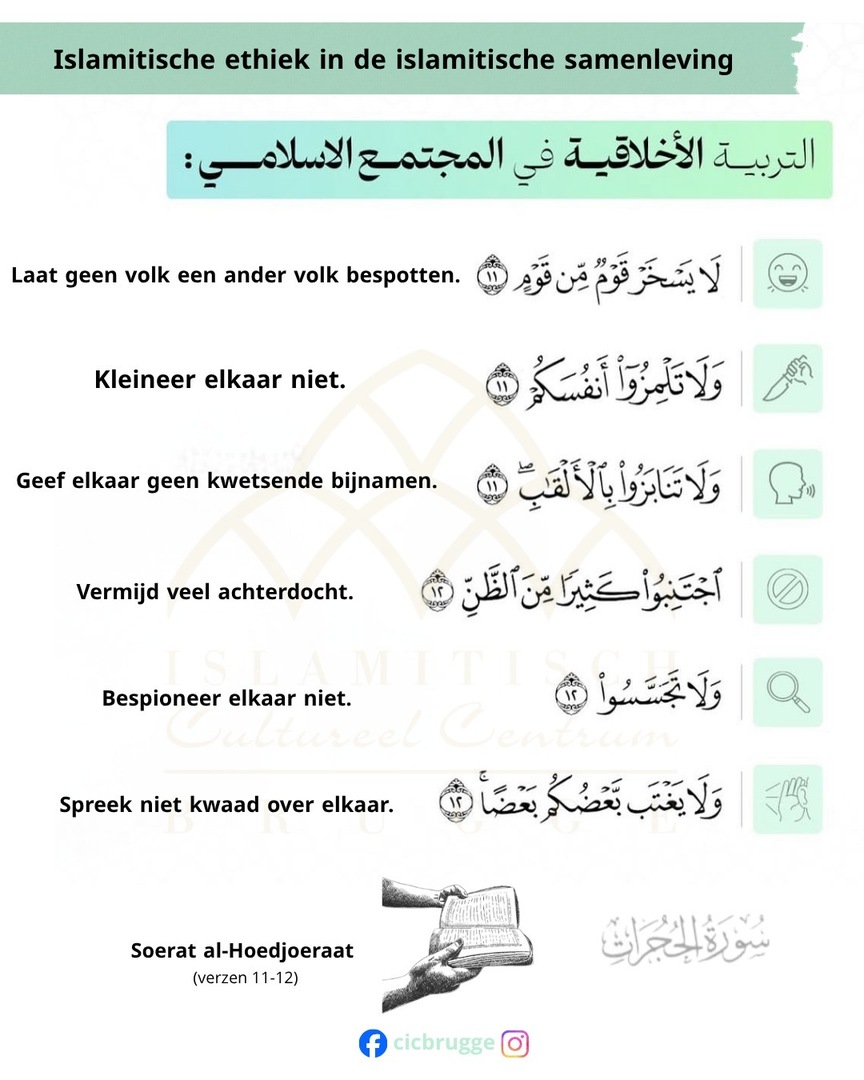 Islamitische ethiek in de islamitische samenleving
التربيـة الأخلاقيـة في المجتمـع الاسلامـي :
Laat geen volk een ander volk bespotten.
لَا يَسْخَرْ قَوْمٌ مِّن قَوْمٍ ١١
Kleineer elkaar niet.
وَلَا تَلْمِزُوٓا۟ أَنفُسَكُمْ ١١
Geef elkaar geen kwetsende bijnamen.
وَلَا تَنَابَزُوا۟ بِٱلْأَلْقَـٰبِ ۖ ١١
Vermijd veel achterdocht.
ٱجْتَنِبُوا۟ كَثِيرًا مِّنَ ٱلظَّنِّ ١٢
Bespioneer elkaar niet.
وَلَا تَجَسَّسُوا۟ ١٢
Spreek niet kwaad over elkaar.
وَلَا يَغْتَب بَّعْضُكُم بَعْضًا ۚ ١٢
ISLAMITISCH
Cultureel Centrum
BRUGGE
Soerat al-Hoedjoeraat
(verzen 11-12)
سُورَةُ الحُجُرَاتِ
cicbrugge